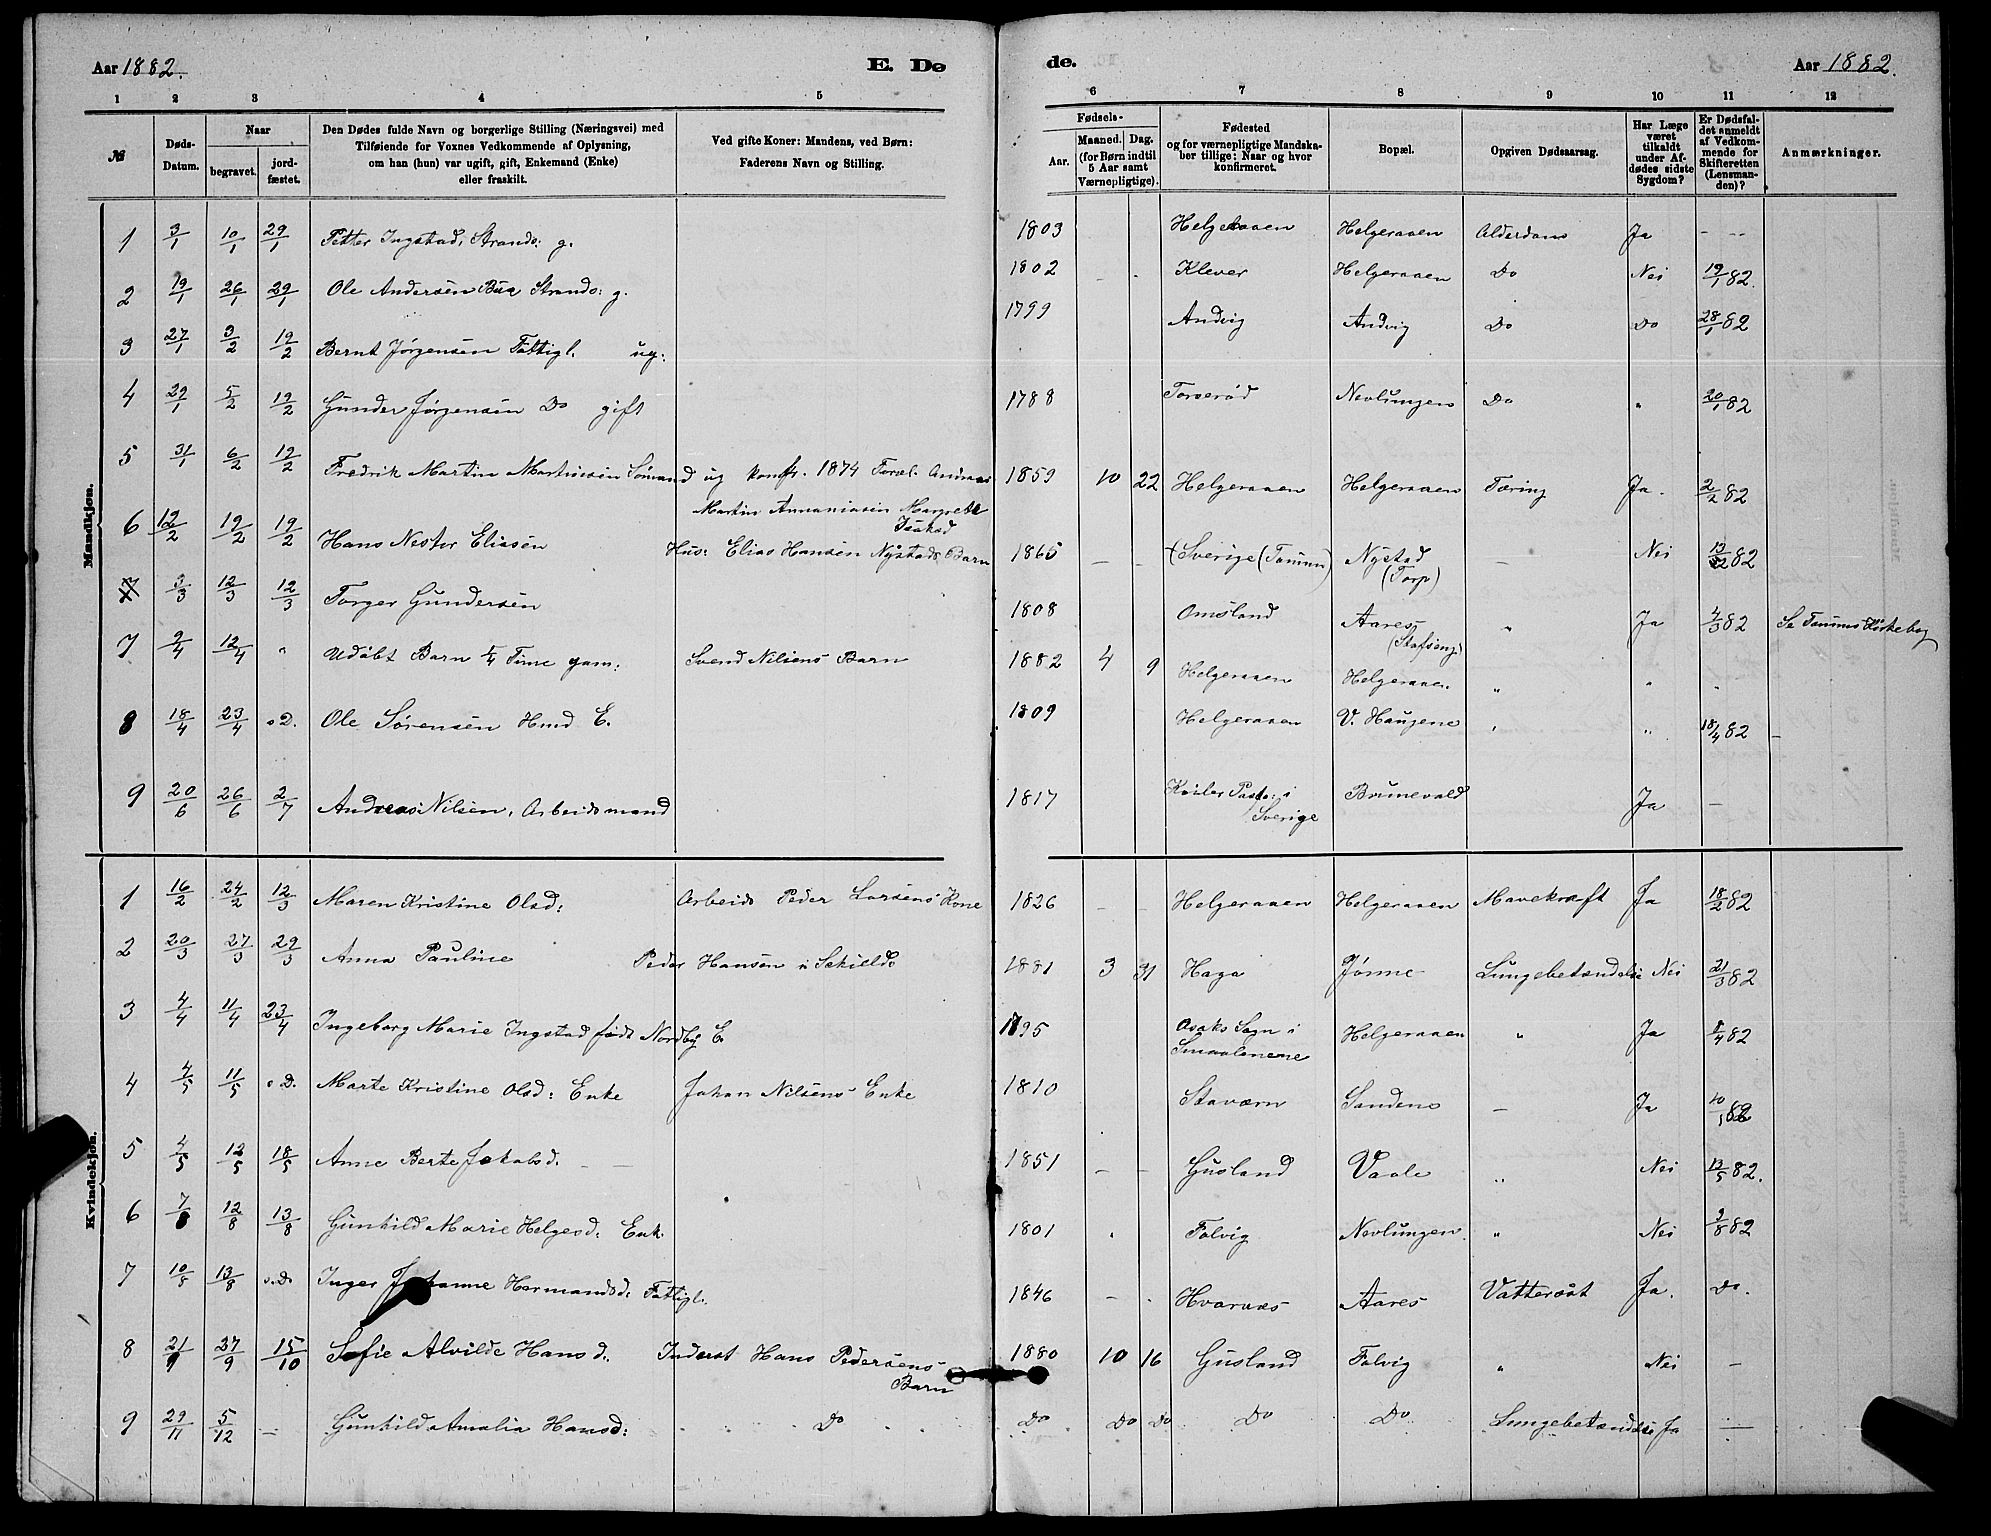 Aar 1882.
E. Dø
1 2 3 4 5
№
Døds-Datum.
Naar
begravet.
jord-fæstet.
Den Dødes fulde Navn og borgerlige Stilling (Næringsvei) med
Tilføiende for Voxnes Vedkommende af Oplysning,
om han (hun) var ugift, gift, Enkemand (Enke)
eller fraskilt.
Ved gifte Koner: Mandens, ved Børn:
Faderens Navn og Stilling.
Mandkjøn.
1 3/1 10/1 29/1 Petter Ingstad, Strands: g.
2 19/1 26/1 29/1 Ole Andersen Bua Strands: g.
3 27/1 3/2 19/2 Bernt Jørgensen Fattigl. ug:
4 29/1 5/2 19/2 Gunder Jørgensen Do gift
5 31/1 6/2 19/2 Fredrik Martin Martinsen Sømand ug konfr. 1874 Foræl.
Martin Annaniasen Margrete Isaksd
6 12/2 19/2 19/2 Hans Nestor Eliasen Hus: Elias Hansen Nystads Barn
7 3/3 12/3 12/3 Torger Gundersen
7 9/4 12/4 " Udøbt Barn 5/4 Time gam: Svend Nilsens Barn
8 18/4 23/4 s.D. Ole Sørensen Hmd E.
9 20/6 26/6 2/7 Andreas Nilsen, Arbeidsmand
Kvindekjøn.
1 16/2 24/2 12/3 Maren Kristine Olsd: Arbeids Peder Larsens Kone
2 20/3 27/3 29/3 Anna Pauline Peder Hansen
3 4/4 11/4 23/4 Ingeborg Marie Ingstad født Nordby E.
4 4/5 11/5 s.D. Marte Kristine Olsd: Enke Johan Nilsens Enke
5 4/5 12/5 18/5 Anne Berte Jakobsd. — —
6 7/8 12/8 13/8 Gunhild Marie Helgesd: Enk.
7 10/8 13/8 s.D. Inger Johanne Hermandsd: Fattigl.
8 21/9 27/9 15/10 Sofie Alvilde Hansd. Inderst Hans Pedersens Barn
9 29/11 5/12 — Gunhild Amalia Hansd: Do
de.
Aar 1882.
6 7 8 9 10 11 12
Fødsels-
Aar.
Maaned. Dag.
(for Børn indtil
5 Aar samt
Værnepligtige).
Fødested
og for værnepligtige Mandska-
ber tillige: Naar og hvor
konfirmeret.
Bopæl.
Opgiven Dødsaarsag.
Har Læge
været
tilkaldt
under Af-
dødes sidste
Sygdom?
Er Dødsfal-
det anmeldt
af Vedkom-
mende for
Skifteretten
(Lensman-
den)?
Anmærkninger.
1803 Helgeraaen Helgeraaen Alderdoms Ja — —
1802 - . Klever Helgeraaen Do Nei 19/1 82.
1799 Andvig Andvig Do Do 28/1 82
1788 Torserød Nevlungen Do " 20/1 82
1859 10 22 Helgeraaen Helgeraaen Tæring Ja. 2/2 82
1865 — — (Sverige (Tanum) Nystad (Torp) — Nei 13/2 82
1808 Omsland Aares " Ja 4/3 82 Se Tanums Kirkebog
1882 4 9 Helgeraaen Helgeraaen " " "
1809 Helgeraaen V. Haugene " " 18/4 82 —
1817 Sverige Brunevald Ja —
1826 — — Helgeraaen Helgeraaen Mavekræft Ja 18/2 82
1881 3 31 Haga Jønne Lungebetændelse Nei 21/3 82
1795 Asaks Sogn i Smaalenene Helgeraaen " Ja 8/4 82
1810 Staværn Sandens — Ja 10/5 82
1851 — — Gusland Vaale " Nei 13/5 82.
1801 . Folvig Nevlungen " Nei 9/8 82
1846 — . Hvarnæs Aares Vattersot Ja. Do.
1880 10 16 Gusland Folvig " Nei —
Do Do Do Do Do Lungebetændelse Ja —